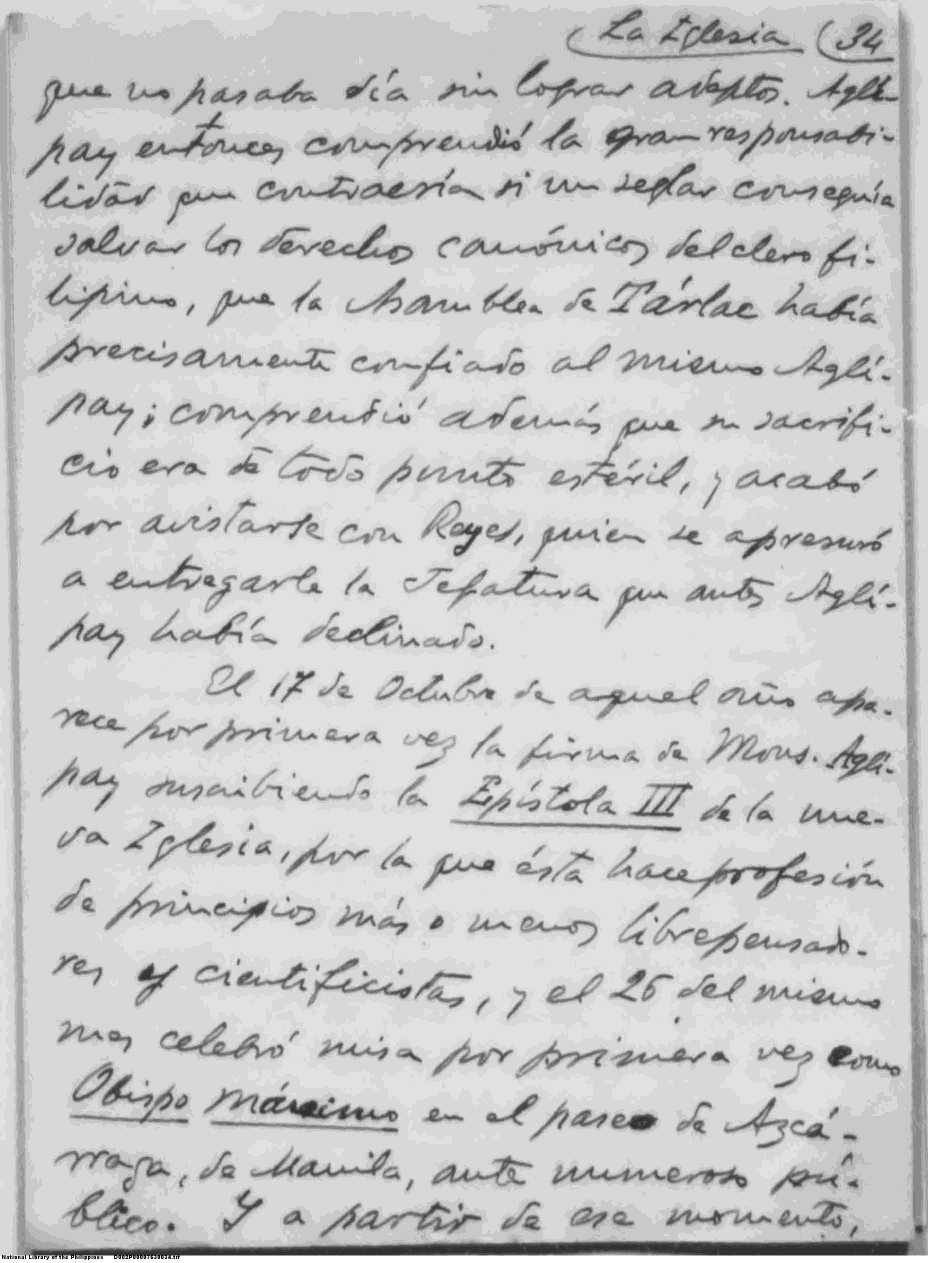 La Iglesia (34
que no pasaba día sin lograr adeptos. Aglí-
pay entonces comprendió la gran responsabi-
lidad que contraería si un seglar conseguía
salvar los derechos canónicos del clero fi-
lipino, que la Asamblea de Tárlac había
precisamente confiado al mismo Aglí-
pay; comprendió además que su sacrifi-
cio era de todo punto estéril, y acabó
por avistarse con Reyes, quien se apresuró
a entregarle la Jefatura que antes Aglí-
pay había declinado.
El 17 de Octubre de aquel año apa-
rece por primera vez la firma de Mons. Aglí-
pay suscribiendo la Epístola III de la nue-
va Iglesia, por la que ésta hace profesión
de principios más o menos librepensado-
res y cientificistas, y el 26 del mismo
mes celebró misa por primera vez como
Obispo máximo en el paseo de Azcá-
rraga, de Manila, ante numeroso pú-
blico. Y a partir de ese momento,
National Library of the Philippines